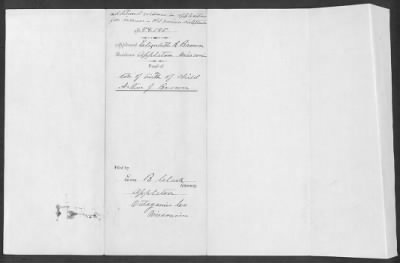 additional evidence in application
for increase in Old Pension Certificate
Applicant Elizabeth A. Brown
Residence Appleton Wisconsin
Proof of
date of birth of child
Arthur J. Brown
Filed by
B. Clark
Attorney
Appleton
Outagamie Co
Wisconsin